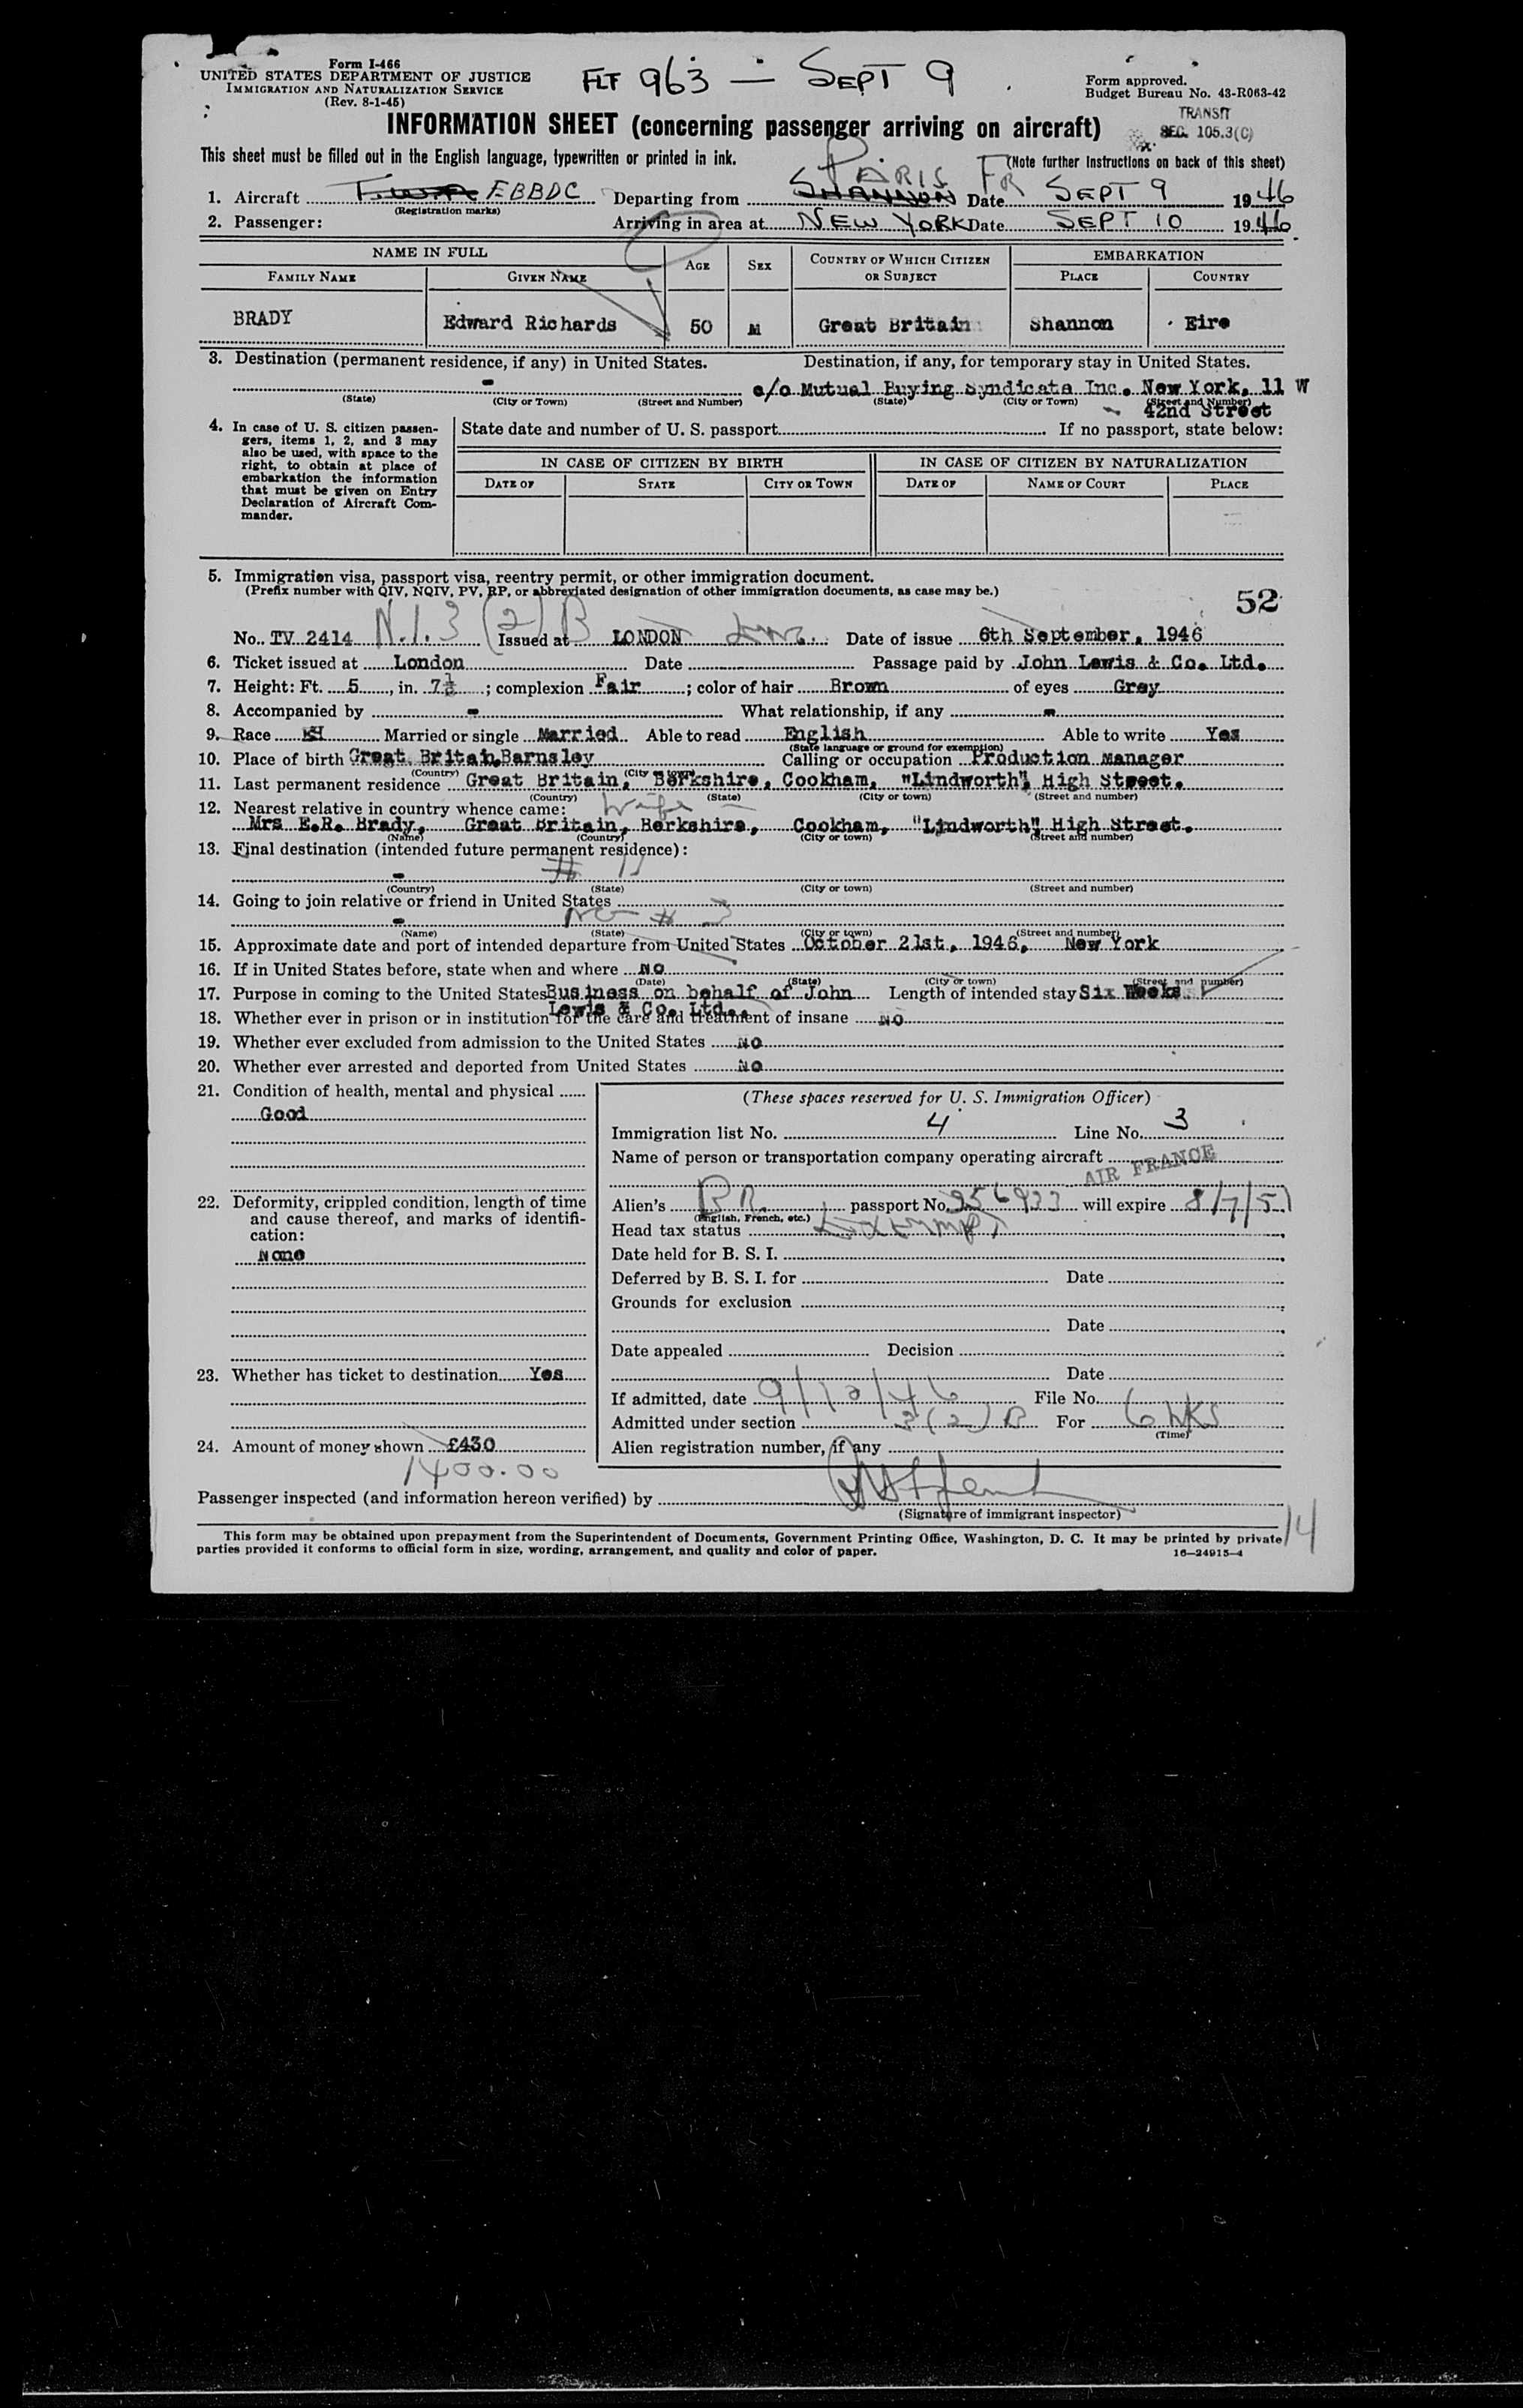 Form I-466
UNITED STATES DEPARTMENT OF JUSTICE
IMMIGRATION AND NATURALIZATION SERVICE
(Rev. 8-1-45)
FLT 963 — SEPT 9
Form approved.
Budget Bureau No. 43-R063-42
TRANSIT
SEC. 105.3(C)
INFORMATION SHEET (concerning passenger arriving on aircraft)
This sheet must be filled out in the English language, typewritten or printed in ink.
(Note further instructions on back of this sheet)
PARIS FR
1. Aircraft FBBDC Departing from SHANNON Date SEPT 9 1946
(Registration marks)
2. Passenger: Arriving in area at NEW YORK Date SEPT 10 1946
NAME IN FULL AGE SEX COUNTRY OF WHICH CITIZEN OR SUBJECT EMBARKATION
FAMILY NAME GIVEN NAME PLACE COUNTRY
BRADY Edward Richards 50 M Great Britain Shannon Eire
3. Destination (permanent residence, if any) in United States. Destination, if any, for temporary stay in United States.
- c/o Mutual Buying Syndicate Inc. New York, 11 W
(State) (City or Town) (Street and Number) (State) (City or Town) (Street and Number)
42nd Street
4. In case of U. S. citizen passengers, items 1, 2, and 3 may also be used, with space to the right, to obtain at place of embarkation the information that must be given on Entry Declaration of Aircraft Commander.
State date and number of U. S. passport If no passport, state below:
IN CASE OF CITIZEN BY BIRTH IN CASE OF CITIZEN BY NATURALIZATION
DATE OF STATE CITY OR TOWN DATE OF NAME OF COURT PLACE
5. Immigration visa, passport visa, reentry permit, or other immigration document.
(Prefix number with QIV, NQIV, PV, RP, or abbreviated designation of other immigration documents, as case may be.)
52
No. TV 2414 N.I. 3 (2) B Issued at LONDON Date of issue 6th September, 1946
6. Ticket issued at London Date Passage paid by John Lewis & Co. Ltd.
7. Height: Ft. 5, in. 7½; complexion Fair; color of hair Brown of eyes Grey
8. Accompanied by - What relationship, if any -
9. Race Married or single Married Able to read English Able to write Yes
(State language or ground for exemption)
10. Place of birth Great Britain, Barnsley Calling or occupation Production Manager
(Country) (City or town)
11. Last permanent residence Great Britain, Berkshire, Cookham, "Lindworth", High Street.
(Country) (State) (City or town) (Street and number)
12. Nearest relative in country whence came: Wife
Mrs E.R. Brady, Great Britain, Berkshire, Cookham, "Lindworth" High Street.
(Name) (Country) (City or town) (Street and number)
13. Final destination (intended future permanent residence):
- # 11
(Country) (State) (City or town) (Street and number)
14. Going to join relative or friend in United States
- no # 3
(Name) (State) (City or town) (Street and number)
15. Approximate date and port of intended departure from United States October 21st, 1946, New York
16. If in United States before, state when and where NO
(Date) (State) (City or town) (Street and number)
17. Purpose in coming to the United States Business on behalf of John Length of intended stay Six Weeks
Lewis & Co. Ltd.
18. Whether ever in prison or in institution for the care and treatment of insane NO
19. Whether ever excluded from admission to the United States NO
20. Whether ever arrested and deported from United States NO
21. Condition of health, mental and physical
Good
22. Deformity, crippled condition, length of time and cause thereof, and marks of identification:
None
23. Whether has ticket to destination Yes
24. Amount of money shown £430
1400.00
(These spaces reserved for U. S. Immigration Officer)
Immigration list No. 4 Line No. 3
Name of person or transportation company operating aircraft AIR FRANCE
Alien's BR. passport No. 256933 will expire 8/7/51
(English, French, etc.)
Head tax status Exempt
Date held for B. S. I.
Deferred by B. S. I. for Date
Grounds for exclusion
Date
Date appealed Decision
Date
If admitted, date 9/10/46 File No.
Admitted under section 3(2)B For 6 WKS
(Time)
Alien registration number, if any
Passenger inspected (and information hereon verified) by
(Signature of immigrant inspector)
14
This form may be obtained upon prepayment from the Superintendent of Documents, Government Printing Office, Washington, D. C. It may be printed by private
parties provided it conforms to official form in size, wording, arrangement, and quality and color of paper. 16—24915-4